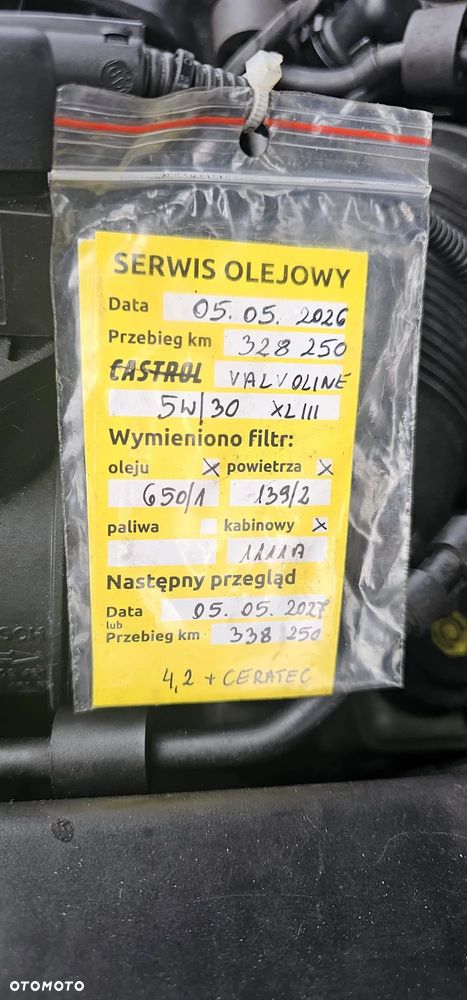 SERWIS OLEJOWY
Data 05.05.2026
Przebieg km 328 250
CASTROL VALVOLINE
5W/30 XLIII
Wymieniono filtr:
oleju x powietrza x
650/1 139/2
paliwa kabinowy x
1111A
Następny przegląd
Data 05.05.2027
lub
Przebieg km 338 250
4,2 + CERATEC
OTOMOTO